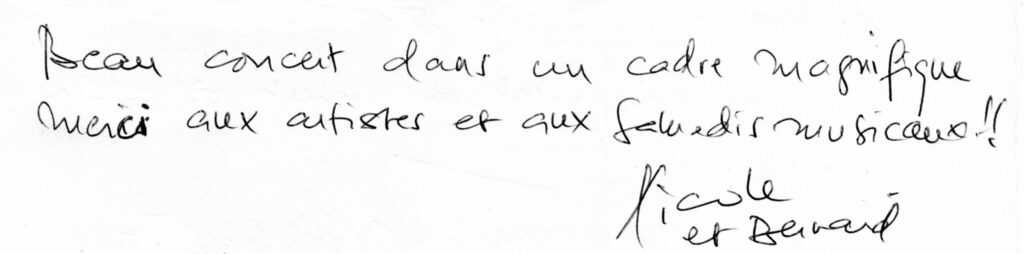 Beau concert dans un cadre magnifique
merci aux artistes et aux Samedis musicaux !!
Nicole
et Bernard